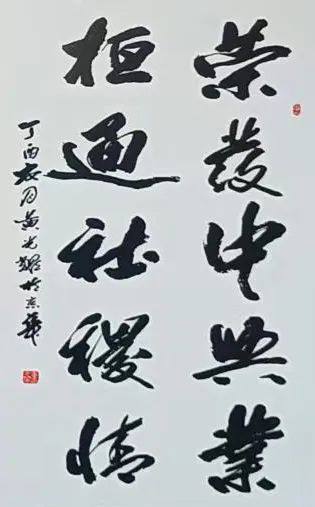 荣發中興業
桓通社稷情
丁酉月黄光於京華